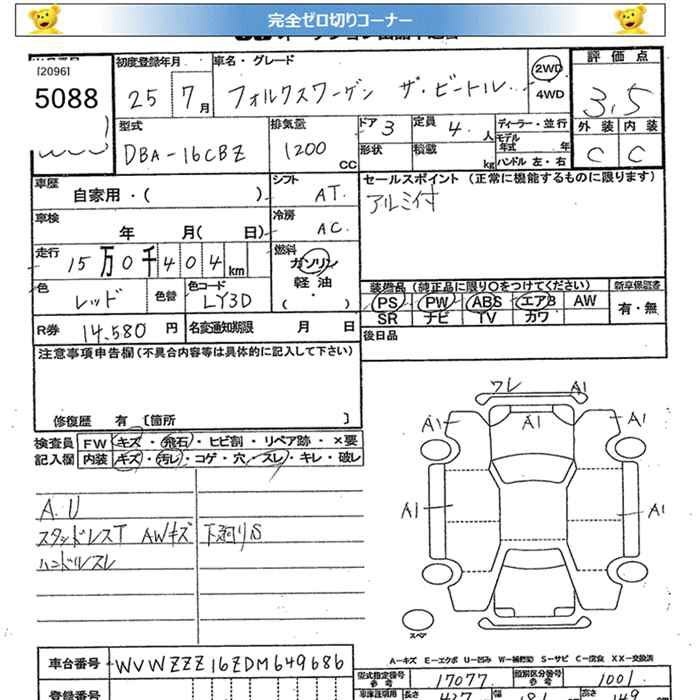 完全ゼロ切りコーナー
[2096]
5088
初度登録年月
25 7月
車名・グレード
フォルクスワーゲン ザ・ビートル
2WD
4WD
評価点
3.5
外装 内装
C C
型式
DBA-16CBZ
排気量
1200 CC
ドア 3
定員 4 人
形状
積載 kg
ディーラー・並行
モデル年式 年
ハンドル 左・右
車歴
自家用・( )
シフト
AT.
車検
年 月( 日)
冷房
AC
走行
15万0千404km
燃料
ガソリン
軽油
( ・ )
色
レッド
色替
色コード
LY3D
R券 14,580 円
名変通知期限 月 日
セールスポイント (正常に機能するものに限ります)
アルミ付
装備品 (純正品に限り○をつけてください)
新車保証書
PS PW ABS エアB AW
SR ナビ TV カワ
有・無
後日品
注意事項申告欄(不具合内容等は具体的に記入して下さい)
修復歴 有 〔箇所 〕
検査員
記入欄
FW キズ・飛石・ヒビ割・リペア跡・×要
内装 キズ・汚レ・コゲ・穴・スレ・キレ・破レ
A.U
スタッドレスT AWキズ 下廻りS
ハンドルスレ
ワレ A1
A1 A1 A1
A1 A1
スペア
A-キズ E-エクボ U-凹み W-補修跡 S-サビ C-腐食 XX-交換済
車台番号 WVWZZZ16ZDM649686
型式指定番号 参考 17077
類別区分番号 参考 1001
登録番号
長さ 427
幅 181
149